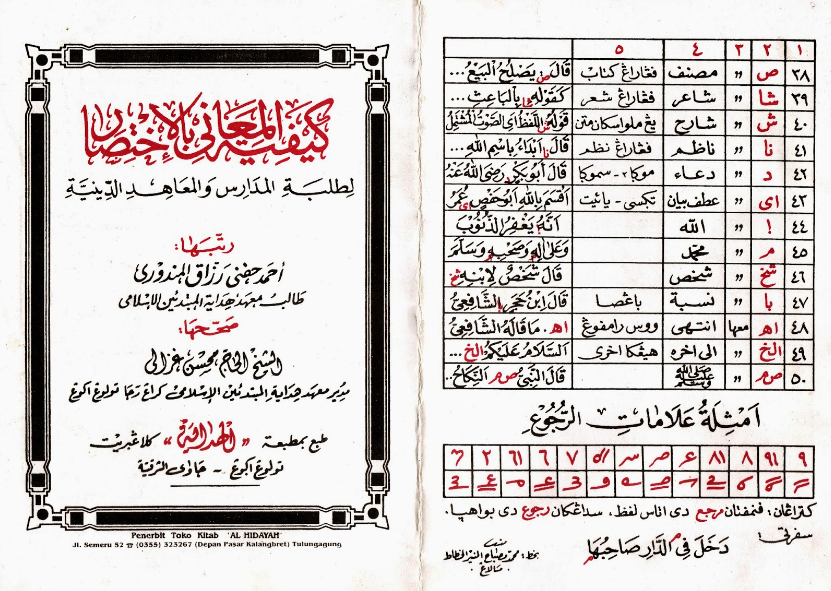 كيفية المعاني بالإختصار
لطلبة المدارس والمعاهد الدينية
رتبها:
طالب معهد هداية المبتدئين الإسلامى
صححها:
الشيخ الحاج محسن غزالى
مدير معهد هداية المبتدئين الإسلامى
طبع بمطبعة "الهداية" كلاغبريت
تولوغ اكوغ - جاوى الشرقية
Penerbit Toko Kitab "AL HIDAYAH"
Jl. Semeru 52 ☎ (0355) 323267 (Depan Pasar Kalangbret) Tulungagung
١ ٢ ٣ ٤ ٥
٣٨ ص " مصنف فڠاراڠ كتاب قَالَ ص يَصْلُحُ الْبَيْعُ ...
٣٩ شا " شاعر فڠاراڠ شعر كَقَوْلِهِ شا بِالْبَاعِثِ ...
٤٠ ش " شارح يڠ ملواسكان متن قَوْلُهُ ش اللَّفْظُ اى الصَّوْتُ الْمُشْتَمِلُ
٤١ نا " ناظم فڠاراڠ نظم قَالَ نا اَبْدَاءُ بِاسْمِ اللهِ ...
٤٢ د " دعاء موكا٢ - سموكا قَالَ أَبُو بَكْرٍ د رَضِىَ اللهُ عَنْهُ
٤٣ اى " عطف بيان تكسى - يائيت اَقْسَمَ بِاللهِ اَبُو حَفْصٍ اى عُمَرُ
٤٤ ا " الله اَنَّهُ ا يَغْفِرُ الذُّنُوْبَ
٤٥ م " محمد وَعَلَى اٰلِهِ م وَصَحْبِهِ م وَسَلَّمَ
٤٦ شخ " شخص قَالَ شَخْصٌ لِاِبْنِهِ شخ
٤٧ با " نسبة باڠصا قَالَ ابْنُ حَجَرٍ با الشَّافِعِيُّ
٤٨ اھ معها انتهى ووس رامفوڠ اھ. مَا قَالَهُ الشَّافِعِيُّ
٤٩ الخ " الى اخره هيڠكا اخرى اَلسَّلَامُ عَلَيْكُمْ الخ ...
٥٠ صم " صلى الله عليه وسلم قَالَ النَّبِيُّ صم اَلنِّكَاحُ ..
اَمْثِلَةُ عَلَامَاتِ الرُّجُوْعِ
كتراڠان: فنمفتان مرجع دى اتاس لفظ، سداڠكان رجوع دى بواهڽا.
سفرتى:
دَخَلَ فِى الدَّارِ صَاحِبُهَا